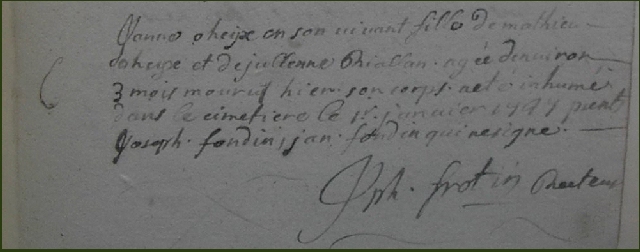 Janne oheix en son vivant fille de mathieu
oheix et de jullenne Thiallan agée denviron
3 mois mourut hier son corps a eté inhumé
dans le cimetiere le 1r. janvier 1747 pnt
Joseph fondin, jan fondin qui ne signe
Jph. frotin Recteur